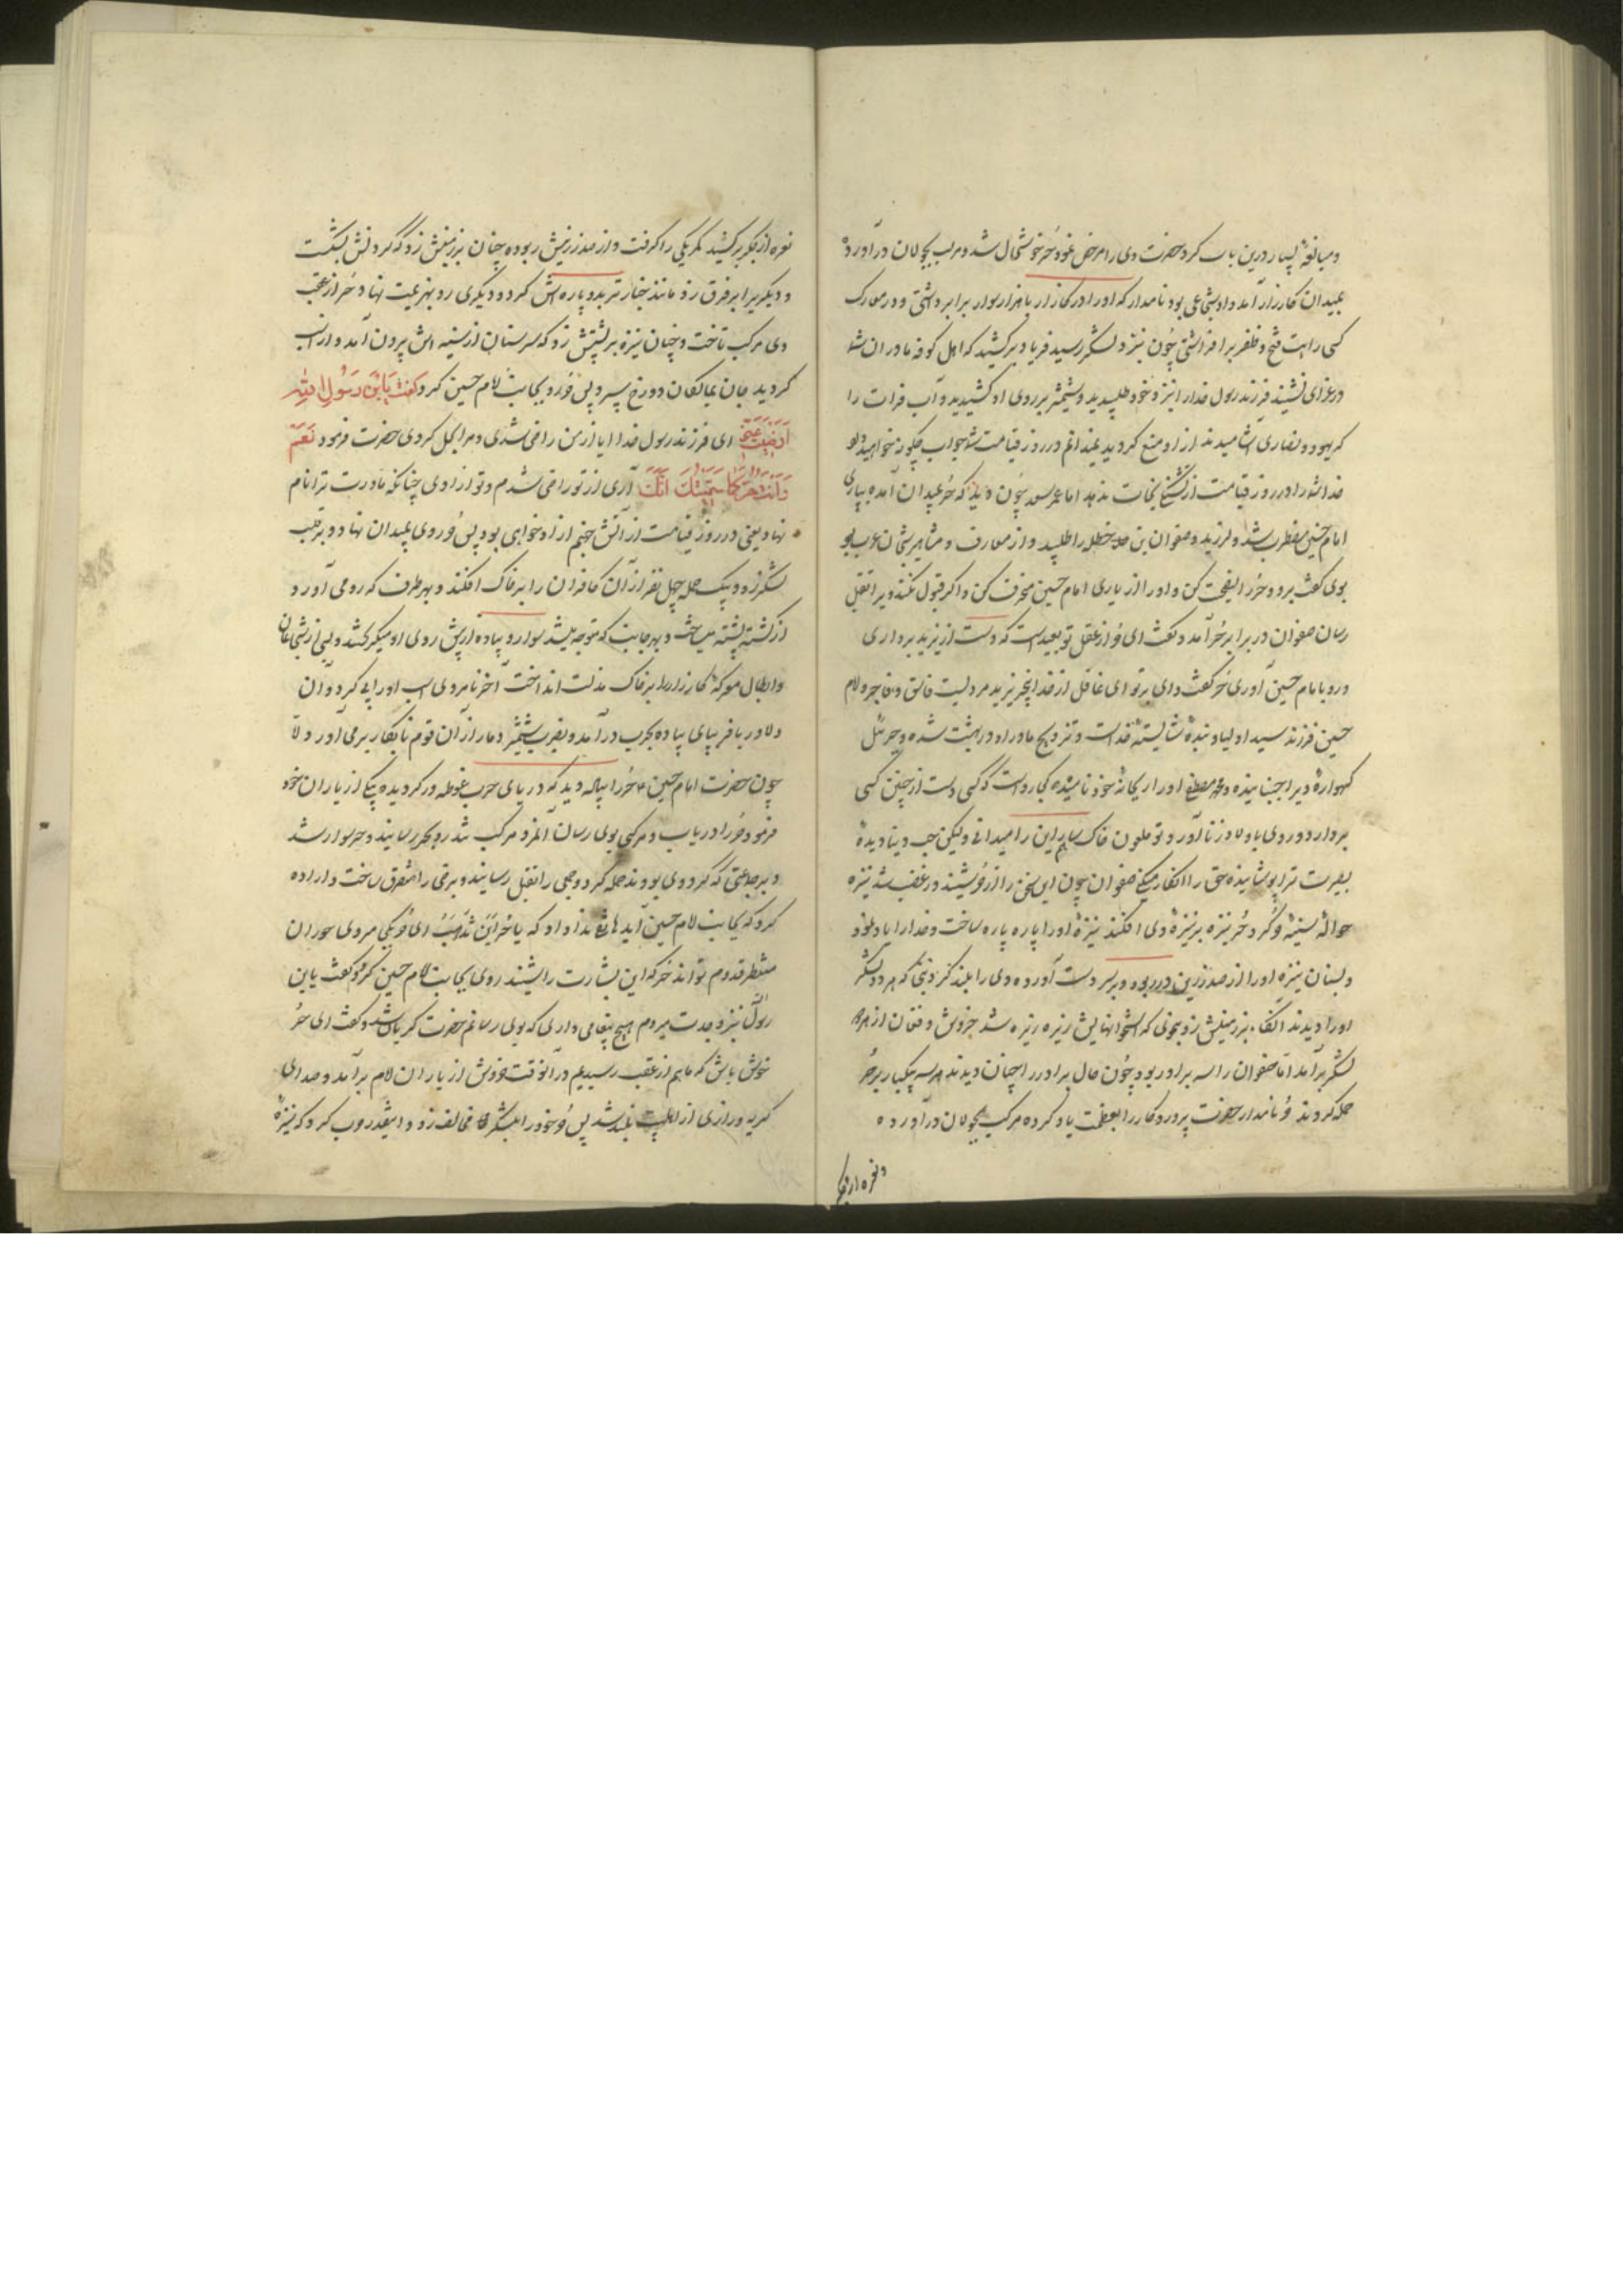 ومبالغهٔ بسیار درین باب کرد حضرت وی را مرخص نمود حُر خوشحال شد و مرکب بجولان درآورده
بمیدان کارزار آمد و او شجاعی بود نامدار که او را در کارزار با هزار سوار برابر داشتی و در معارک
کسی رایت فتح و ظفر برافراشتی چون بنزد لشکر رسید فریاد برکشید که اهل کوفه مادران شما
در عزای نشیند فرزند رسول خدا را بنزد خود طلبیدید و شمشیر بر روی او کشیدید و آب فرات را
که یهود و نصاری آشامیدند از او منع کردید نمیدانم در روز قیامت شما جواب چگونه خواهید داد
خدا شما را در روز قیامت از تشنگی نجات ندهد اما عمر سعد چون دید که حُر بمیدان آمده بیاری
امام حسین مضطرب شد و لرزید و صفوان بن حنظله را طلبید و از معارف و مشاهیر شجاعان عرب بود
بوی گفت برو و حُر را نصیحت کن و او را از یاری امام حسین منحرف کن و اگر قبول نکند ویرا بقتل
رسان صفوان در برابر حُر آمد و گفت ای حُر از عقل تو بعید است که دست از یزید برداری
و رو بامام حسین آوری حُر گفت وای بر تو ای غافل از خدا بیخبر یزید مردیست فاسق و فاجر و امام
حسین فرزند سید اولیا و بندهٔ شایستهٔ خداست و تزویج مادر او در بهشت شده و جبرئیل
گهوارهٔ ویرا جنبانیده و محمد مصطفی او را ریحانهٔ خود نامیده کجا رواست که کسی دست از چنین کسی
بردارد و روی باولاد زنا آورد و تو ملعون خاک سار این را میدانی ولیکن حب دنیا دیدهٔ
بصیرت ترا پوشانیده حق را انکار میکنی صفوان چون این سخن را از حُر شنید در غضب شد نیزه
حوالهٔ سینهٔ حُر کرد حُر نیزه بر نیزهٔ وی افکند نیزهٔ او را پاره پاره ساخت و خدا را یاد نمود
و بسنان نیزه او را از صدر زین در ربود و بر سر دست آورده وی را بلند کرد بنوعی که هر دو لشکر
او را دیدند آنگاه بر زمینش زد بنوعی که استخوانهایش ریزه ریزه شد خروش و فغان از هر دو
لشکر برآمد اما صفوان را سه برادر بود چون حال برادر را چنان دیدند هر سه بیکبار بر حُر
حمله کردند حُر نامدار حضرت پروردگار را بعظمت یاد کرده مرکب بجولان درآورده
و نعره از جگر
نعره از جگر برکشید کمر یکی را گرفت و از صدر زینش ربوده چنان بر زمینش زد که گردنش بشکست
و دیگریرا بر فرق زد مانند خیار تر بدو پاره اش کرد و دیگری رو بهزیمت نهاد حُر از عقب
وی مرکب تاخت و چنان نیزه بر پشتش زد که سر سنان از سینه اش بیرون آمد و از اسب
گردید جان بمالکان دوزخ سپرد پس حُر رو بجانب امام حسین کرد و گفت یَابْنَ رَسُولِ اللهِ
اَرَضَیْتَ عَنّی ای فرزند رسول خدا آیا از من راضی شدی و مرا بحل کردی حضرت فرمود نَعَمْ
وَاَنْتَ حُرٌّ کَمَا سَمَّتْکَ اُمُّکَ آری از تو راضی شدم و تو آزادی چنانکه مادرت ترا نام
نهاد یعنی در روز قیامت از آتش جهنم آزاد خواهی بود پس حُر روی بمیدان نهاد و بر قلب
لشکر زد و بیک حمله چهل نفر از آن کافران را بر خاک افکند و بهر طرف که رو می آورد
از کشته پشته میساخت و بهر جانب که متوجه میشد سوار و پیاده از پیش روی او میگریختند و بسی از شجاعان
و ابطال معرکهٔ کارزار را بر خاک مذلت انداخت آخر نامردی اسب او را پی کرد و آن
دلاور با فر بپای پیاده بحرب درآمد و بضرب شمشیر دمار از آن قوم نابکار برمی آورد و تا
چون حضرت امام حسین ع حُر را پیاده دید که در دریای حرب غوطه ور گردیده بیکی از یاران خود
فرمود حُر را دریاب و مرکبی بوی رسان آنمرد مرکب تند رو بحر رسانید و حر سوار شد
و بر جماعتی که گرد وی بودند حمله کرد و جمعی را بقتل رسانید و برخی را متفرق ساخت و اراده
کرد که بجانب امام حسین آید هاتفی ندا داد که یا حُر اَیْنَ تَذْهَبُ ای حُر بکجا میروی حوران
منتظر قدوم تواند حُر که این بشارت را شنید روی بجانب امام حسین کرد و گفت یابن
رسول الله بنزد جدت میروم هیچ پیغامی داری که بوی رسانم حضرت گریان شد و گفت ای حُر
خوش باش که ما هم از عقب رسیدیم در آنوقت خروش از یاران امام برآمد و صدای
گریه و زاری از اهلبیت بلند شد پس حُر خود را بلشکر مخالف زد و اینقدر حرب کرد که نیزهٔ